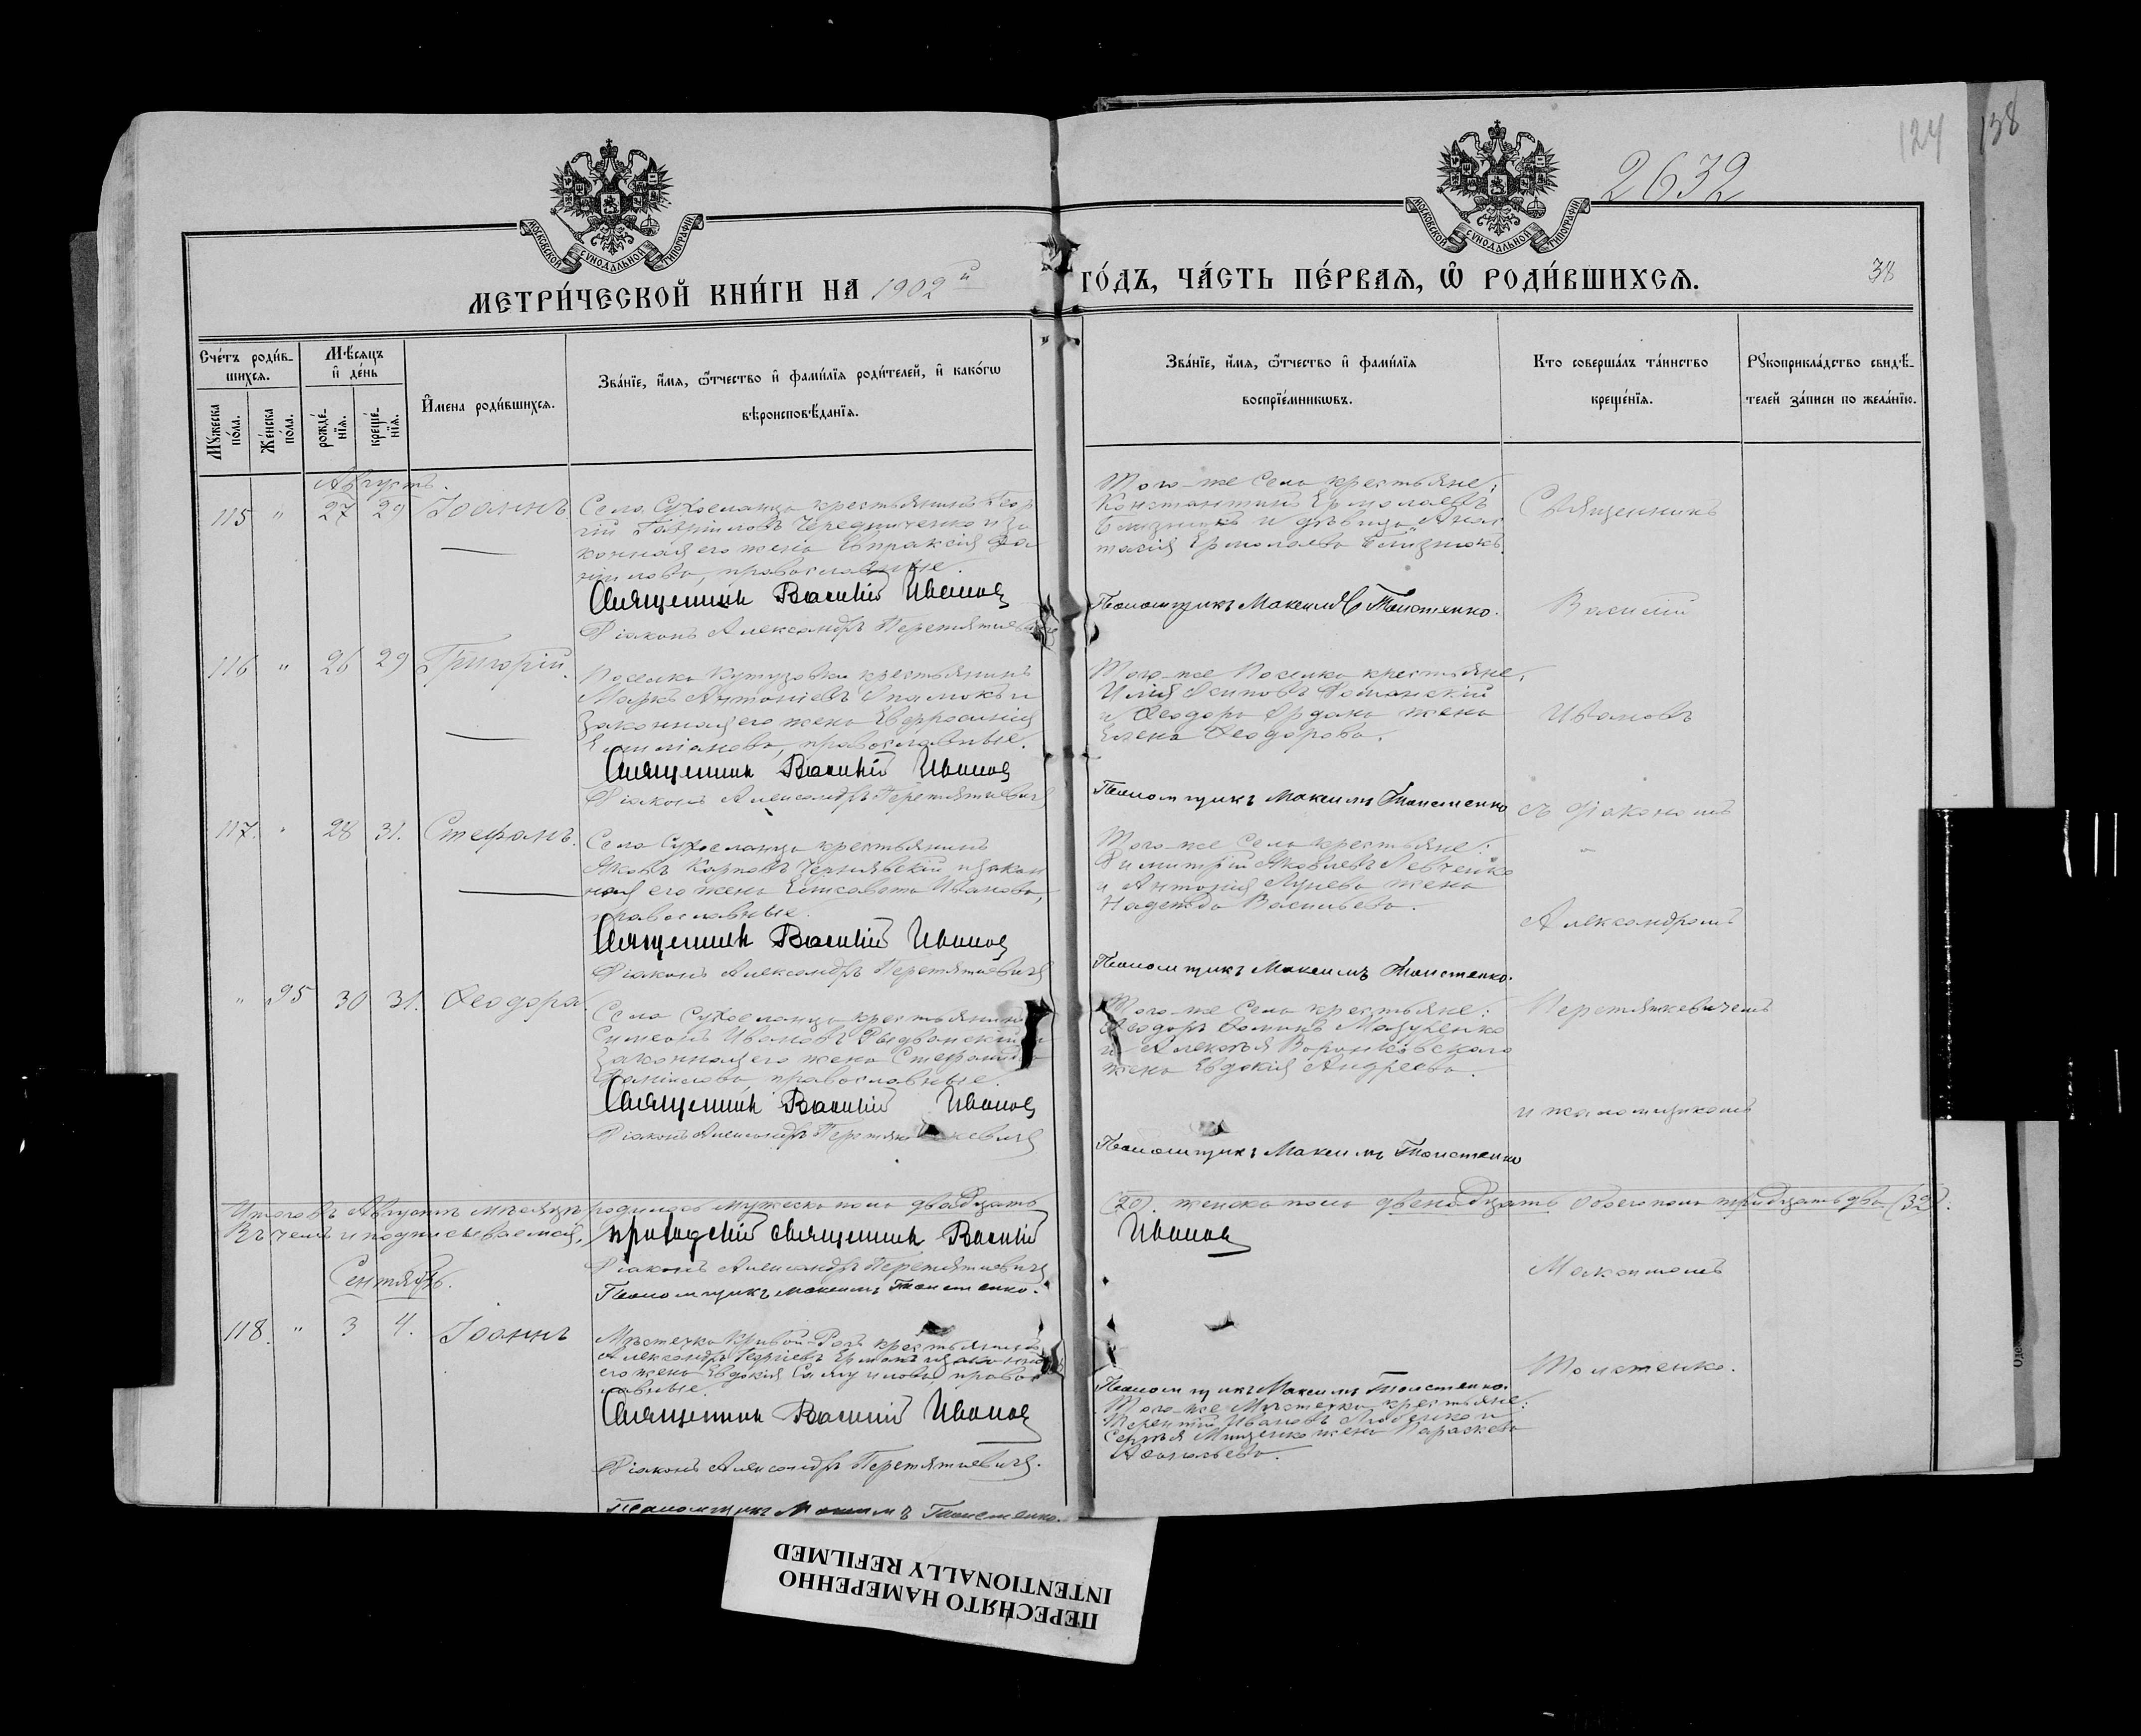 124
138
2632
38
МОСКОВСКОЙ СѴНОДАЛЬНОЙ ТИПОГРАФІИ
МОСКОВСКОЙ СѴНОДАЛЬНОЙ ТИПОГРАФІИ
МЕТРИ́ЧЕСКОЙ КНИ́ГИ НА 1902й ГО́ДЪ, ЧА́СТЬ ПЕ́РВАЯ, Ѿ РОДИ́ВШИХСЯ.
Сче́тъ роди́в-
шихся.
Мѣ́сяцъ
и де́нь
Мꙋжеска по́ла.
Же́нска по́ла.
рожде́-нїя.
креще́-нїя.
И҆мена роди́вшихся.
Зва́нїе, и҆́мя, ѻ҆́тчество и҆ фами́лїя роди́телей, и҆ како́гѡ
вѣроисповѣ́данїя.
Зва́нїе, и҆́мя, ѻ҆́тчество и҆ фами́лїя
воспрїе́мникѡвъ.
Кто соверша́лъ та́инство
креще́нїя.
Рꙋкоприкла́дство свидѣ́-
телей за́писи по жела́нїю.
Августъ.
115 " 27 29 Іоаннъ
Села Сухоеланца крестьянинъ Геор
гій Гавріиловъ Чередниченко и за
конная его жена Евпраксія Да
ніилова, православные.
Священникъ Василій Ивановъ
Діаконъ Александръ Перетяткевичъ
Того-же Села крестьяне:
Константинъ Ермолаевъ
Близнюкъ и дѣвица Анас
тасія Ермолаева Близнюкъ.
Псаломщикъ Максимъ Толстенко.
Священникъ
Василій
116 " 26 29 Григорій.
Поселка Кутузовки крестьянинъ
Маркъ Антоніевъ и
законная его жена Евфросинія
Емиліанова, православные.
Священникъ Василій Ивановъ
Діаконъ Александръ Перетяткевичъ
Того-же Поселка крестьяне,
Илія Осиповъ
и Ѳеодора жена
Елена Ѳеодорова.
Псаломщикъ Максимъ Толстенко
Ивановъ
съ діакономъ
117. " 28 31. Стефанъ.
Села Сухоеланца крестьянинъ
Яковъ Карповъ Чернявскій и закон
ная его жена Елисавета Иванова,
православные.
Священникъ Василій Ивановъ
Діаконъ Александръ Перетяткевичъ
Того-же Села крестьяне:
Димитрій Яковлевъ Левченко
и Антонія жена
Надежда Васильева.
Псаломщикъ Максимъ Толстенко.
Александромъ
" 95 30 31. Ѳеодора.
Села Сухоеланца крестьянинъ
Симеонъ Ивановъ и
законная его жена Стефанида
Даніилова, православные.
Священникъ Василій Ивановъ
Діаконъ Александръ Перетяткевичъ
Того-же Села крестьяне:
Ѳеодоръ Ѳоминъ
и Алексѣя Воронковскаго
жена Евдокія Андреева.
Псаломщикъ Максимъ Толстенко
Перетяткевичемъ
и псаломщикомъ
Итого въ Августѣ мѣсяцѣ родилось мужеска пола двадцать (20). женска пола двенадцать обоего пола тридцать два (32).
Въ чемъ и подписываемся, приходскій священникъ Василій Ивановъ
Діаконъ Александръ Перетяткевичъ
Псаломщикъ Максимъ Толстенко.
Максимомъ
Сентябрь.
118. " 3 4. Іоаннъ
Мѣстечка Кривой-Рогъ крестьянинъ
Александръ Георгіевъ и законная
его жена Евдокія Самуилова, правос
лавные.
Священникъ Василій Ивановъ
Діаконъ Александръ Перетяткевичъ.
Псаломщикъ Максимъ Толстенко.
Псаломщикъ Максимъ Толстенко.
Того-же Мѣстечка крестьяне:
Терентій Ивановъ и
Сергѣя Мищенко жена Параскева
Толстенко.
ПЕРЕСНЯТО НАМЕРЕННО
INTENTIONALLY REFILMED